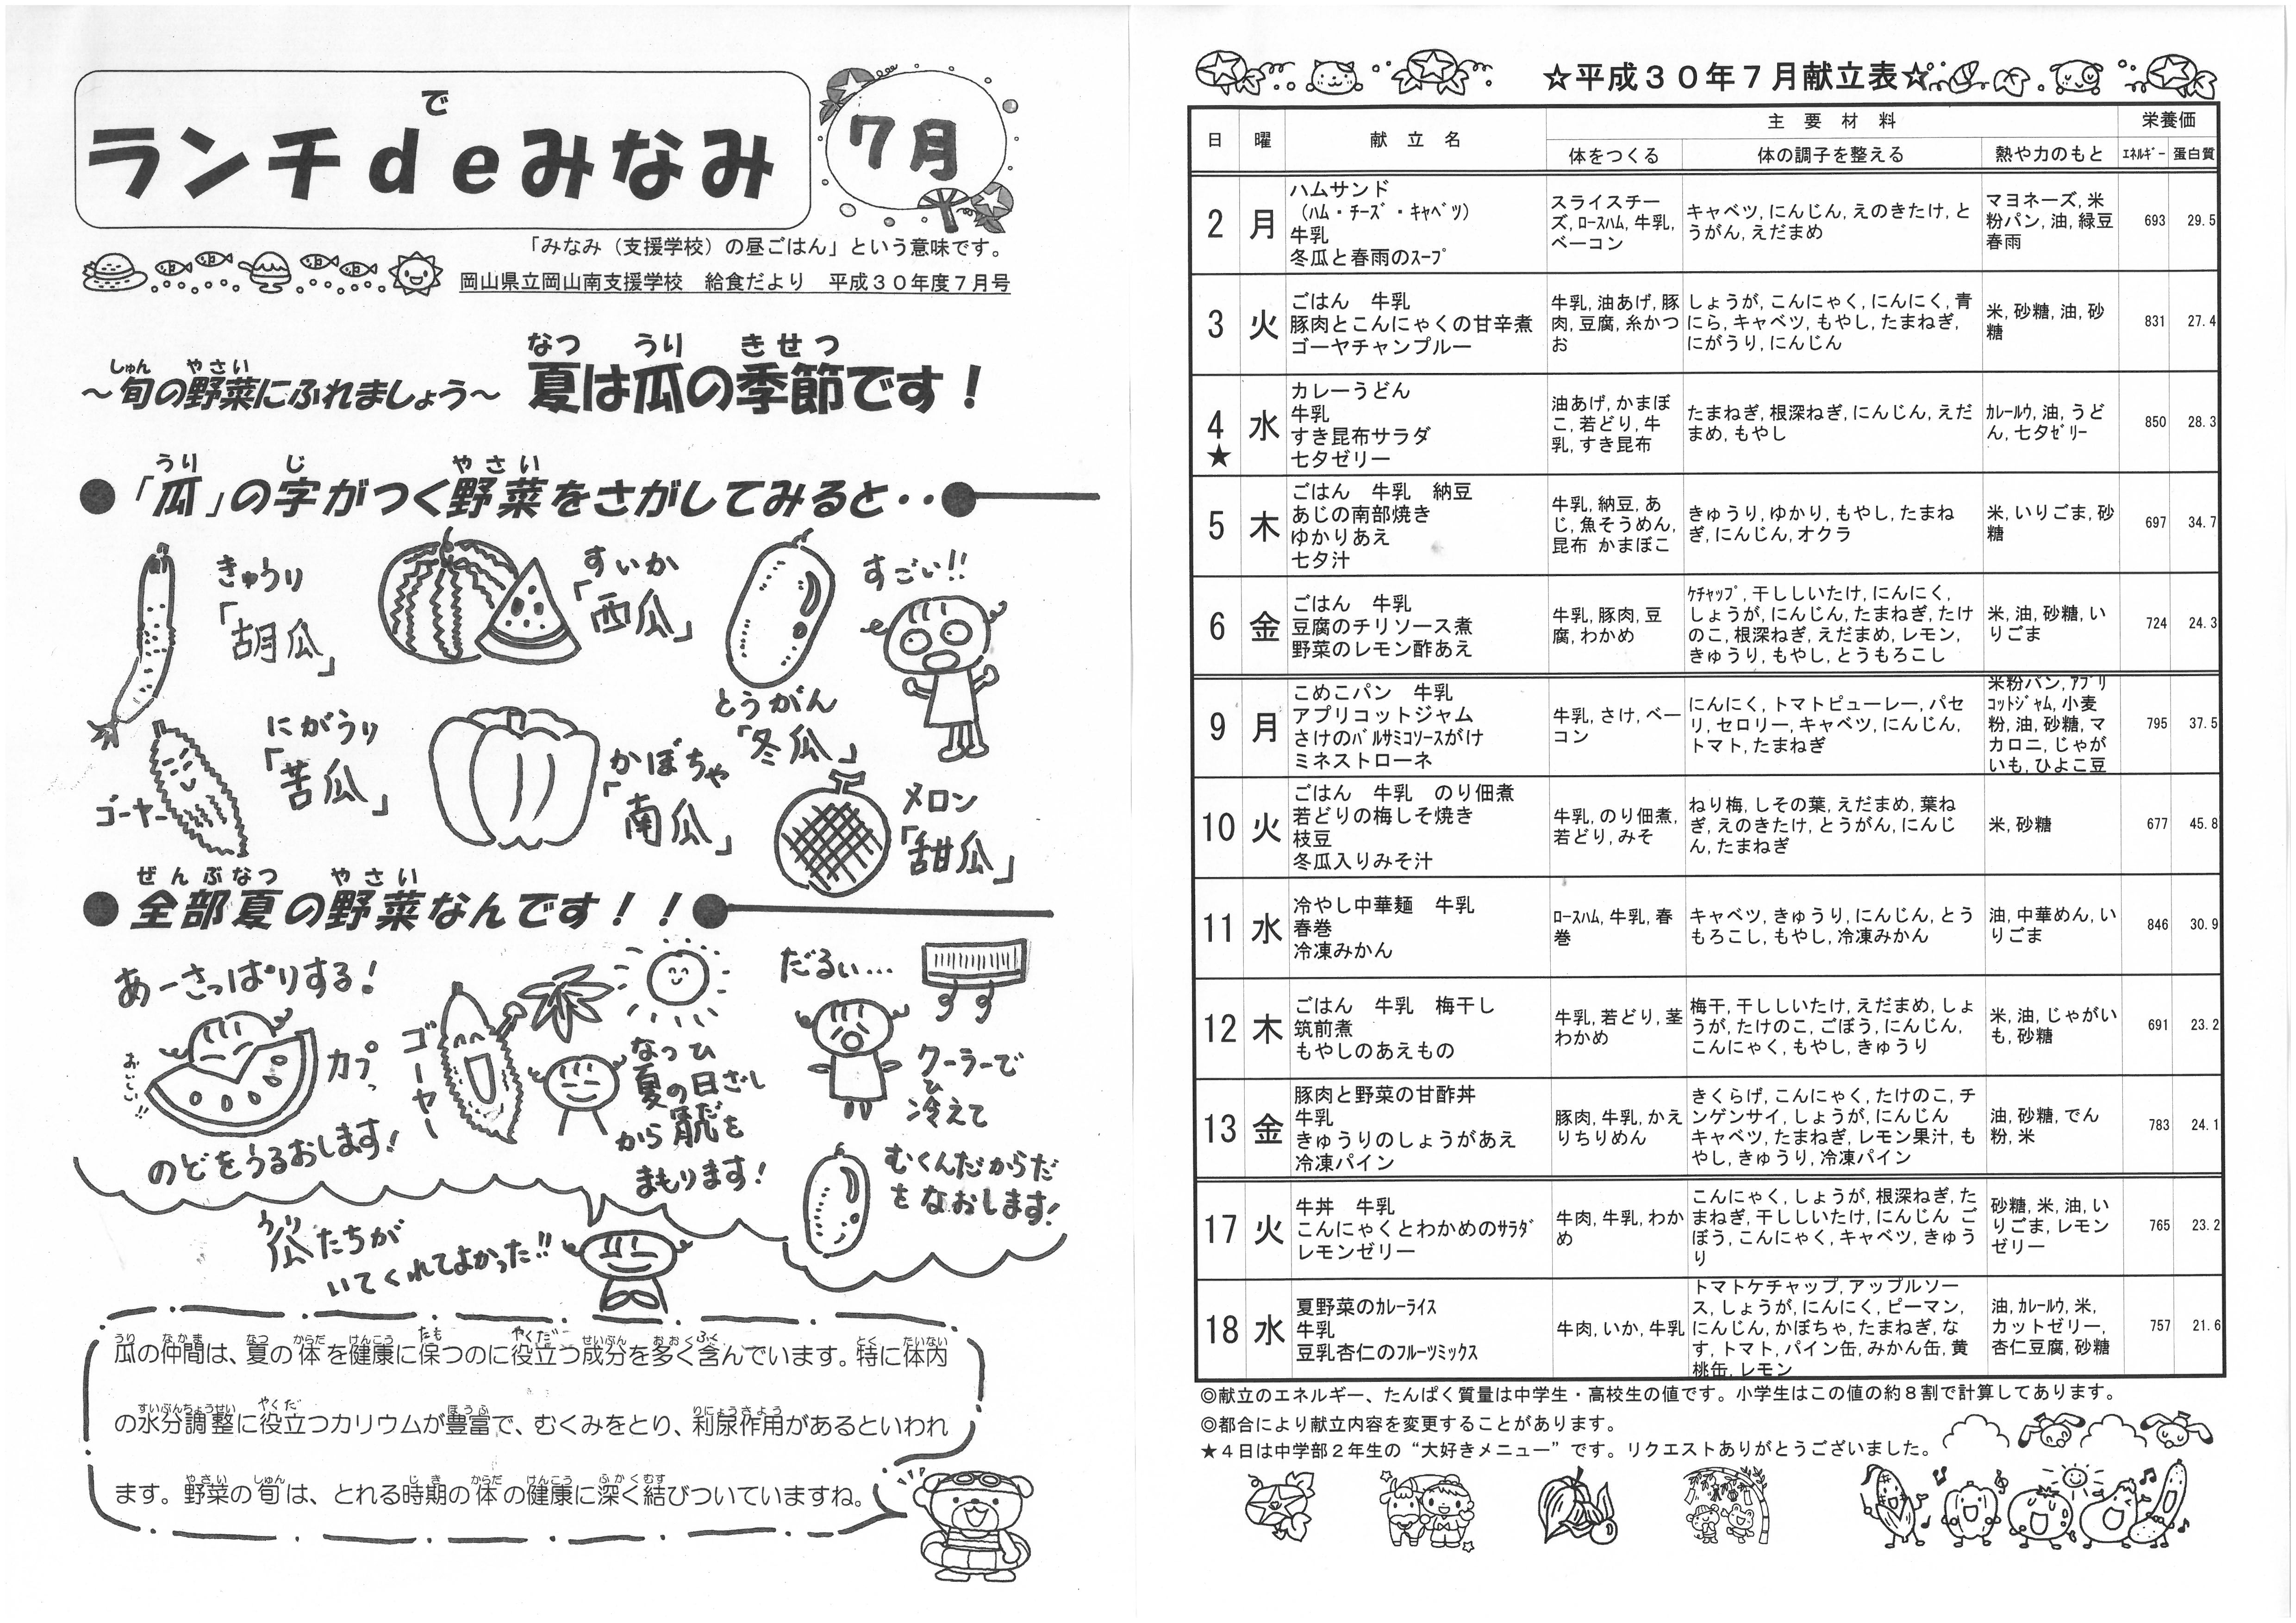 で
ランチｄｅみなみ
7月
「みなみ（支援学校）の昼ごはん」という意味です。
岡山県立岡山南支援学校　給食だより　平成３０年度７月号
しゅん　やさい
～旬の野菜にふれましょう～
なつ　うり　きせつ
夏は瓜の季節です！
うり　じ　やさい
●「瓜」の字がつく野菜をさがしてみると・・●
きゅうり
「胡瓜」
すいか
「西瓜」
とうがん
「冬瓜」
すごい!!
にがうり
「苦瓜」
ゴーヤー
かぼちゃ
「南瓜」
メロン
「甜瓜」
ぜんぶなつ　やさい
●全部夏の野菜なんです！！●
あーさっぱりする！
カプっ
のどをうるおします！
ゴーヤー
なつ　ひ
夏の日ざし
はだ
から肌を
まもります！
だるい…
クーラーで
ひ
冷えて
むくんだからだ
をなおします！
うり
瓜たちが
いてくれてよかった!!
うり　なかま　なつ　からだ　けんこう　たも　やくだ　せいぶん　おおくふく　とく　たいない
瓜の仲間は、夏の体を健康に保つのに役立つ成分を多く含んでいます。特に体内
すいぶんちょうせい　やくだ　ほうふ　りにょうさよう
の水分調整に役立つカリウムが豊富で、むくみをとり、利尿作用があるといわれ
やさい　しゅん　じき　からだ　けんこう　ふかくむす
ます。野菜の旬は、とれる時期の体の健康に深く結びついていますね。
☆平成３０年７月献立表☆
日　曜　献　立　名　主　要　材　料　栄養価
体をつくる　体の調子を整える　熱や力のもと　ｴﾈﾙｷﾞｰ　蛋白質
2　月
ハムサンド
（ﾊﾑ・ﾁｰｽﾞ・ｷｬﾍﾞﾂ）
牛乳
冬瓜と春雨のｽｰﾌﾟ
スライスチー
ズ,ﾛｰｽﾊﾑ,牛乳,
ベーコン
キャベツ,にんじん,えのきたけ,と
うがん,えだまめ
マヨネーズ,米
粉パン,油,緑豆
春雨
693　29.5
3　火
ごはん　牛乳
豚肉とこんにゃくの甘辛煮
ゴーヤチャンプルー
牛乳,油あげ,豚
肉,豆腐,糸かつ
お
しょうが,こんにゃく,にんにく,青
にら,キャベツ,もやし,たまねぎ,
にがうり,にんじん
米,砂糖,油,砂
糖
831　27.4
4　水
★
カレーうどん
牛乳
すき昆布サラダ
七夕ゼリー
油あげ,かまぼ
こ,若どり,牛
乳,すき昆布
たまねぎ,根深ねぎ,にんじん,えだ
まめ,もやし
ｶﾚｰﾙｳ,油,うど
ん,七夕ｾﾞﾘｰ
850　28.3
5　木
ごはん　牛乳　納豆
あじの南部焼き
ゆかりあえ
七夕汁
牛乳,納豆,あ
じ,魚そうめん,
昆布 かまぼこ
きゅうり,ゆかり,もやし,たまね
ぎ,にんじん,オクラ
米,いりごま,砂
糖
697　34.7
6　金
ごはん　牛乳
豆腐のチリソース煮
野菜のレモン酢あえ
牛乳,豚肉,豆
腐,わかめ
ｹﾁｬｯﾌﾟ,干ししいたけ,にんにく,
しょうが,にんじん,たまねぎ,たけ
のこ,根深ねぎ,えだまめ,レモン,
きゅうり,もやし,とうもろこし
米,油,砂糖,い
りごま
724　24.3
9　月
こめこパン　牛乳
アプリコットジャム
さけのﾊﾞﾙｻﾐｺｿｰｽがけ
ミネストローネ
牛乳,さけ,ベー
コン
にんにく,トマトピューレー,パセ
リ,セロリー,キャベツ,にんじん,
トマト,たまねぎ
米粉パン,ｱﾌﾟﾘ
ｺｯﾄｼﾞｬﾑ,小麦
粉,油,砂糖,マ
カロニ,じゃが
いも,ひよこ豆
795　37.5
10　火
ごはん　牛乳　のり佃煮
若どりの梅しそ焼き
枝豆
冬瓜入りみそ汁
牛乳,のり佃煮,
若どり,みそ
ねり梅,しその葉,えだまめ,葉ね
ぎ,えのきたけ,とうがん,にんじ
ん,たまねぎ
米,砂糖
677　45.8
11　水
冷やし中華麺　牛乳
春巻
冷凍みかん
ﾛｰｽﾊﾑ,牛乳,春
巻
キャベツ,きゅうり,にんじん,とう
もろこし,もやし,冷凍みかん
油,中華めん,い
りごま
846　30.9
12　木
ごはん　牛乳　梅干し
筑前煮
もやしのあえもの
牛乳,若どり,茎
わかめ
梅干,干ししいたけ,えだまめ,しょ
うが,たけのこ,ごぼう,にんじん,
こんにゃく,もやし,きゅうり
米,油,じゃがい
も,砂糖
691　23.2
13　金
豚肉と野菜の甘酢丼
牛乳
きゅうりのしょうがあえ
冷凍パイン
豚肉,牛乳,かえ
りちりめん
きくらげ,こんにゃく,たけのこ,チ
ンゲンサイ,しょうが,にんじん
キャベツ,たまねぎ,レモン果汁,も
やし,きゅうり,冷凍パイン
油,砂糖,でん
粉,米
783　24.1
17　火
牛丼　牛乳
こんにゃくとわかめのｻﾗﾀﾞ
レモンゼリー
牛肉,牛乳,わか
め
こんにゃく,しょうが,根深ねぎ,た
まねぎ,干ししいたけ,にんじん ご
ぼう,こんにゃく,キャベツ,きゅう
り
砂糖,米,油,い
りごま,レモン
ゼリー
765　23.2
18　水
夏野菜のｶﾚｰﾗｲｽ
牛乳
豆乳杏仁のﾌﾙｰﾂﾐｯｸｽ
牛肉,いか,牛乳
トマトケチャップ,アップルソー
ス,しょうが,にんにく,ピーマン,
にんじん,かぼちゃ,たまねぎ,な
す,トマト,パイン缶,みかん缶,黄
桃缶,レモン
油,ｶﾚｰﾙｳ,米,
カットゼリー,
杏仁豆腐,砂糖
757　21.6
◎献立のエネルギー、たんぱく質量は中学生・高校生の値です。小学生はこの値の約８割で計算してあります。
◎都合により献立内容を変更することがあります。
★４日は中学部２年生の“大好きメニュー”です。リクエストありがとうございました。